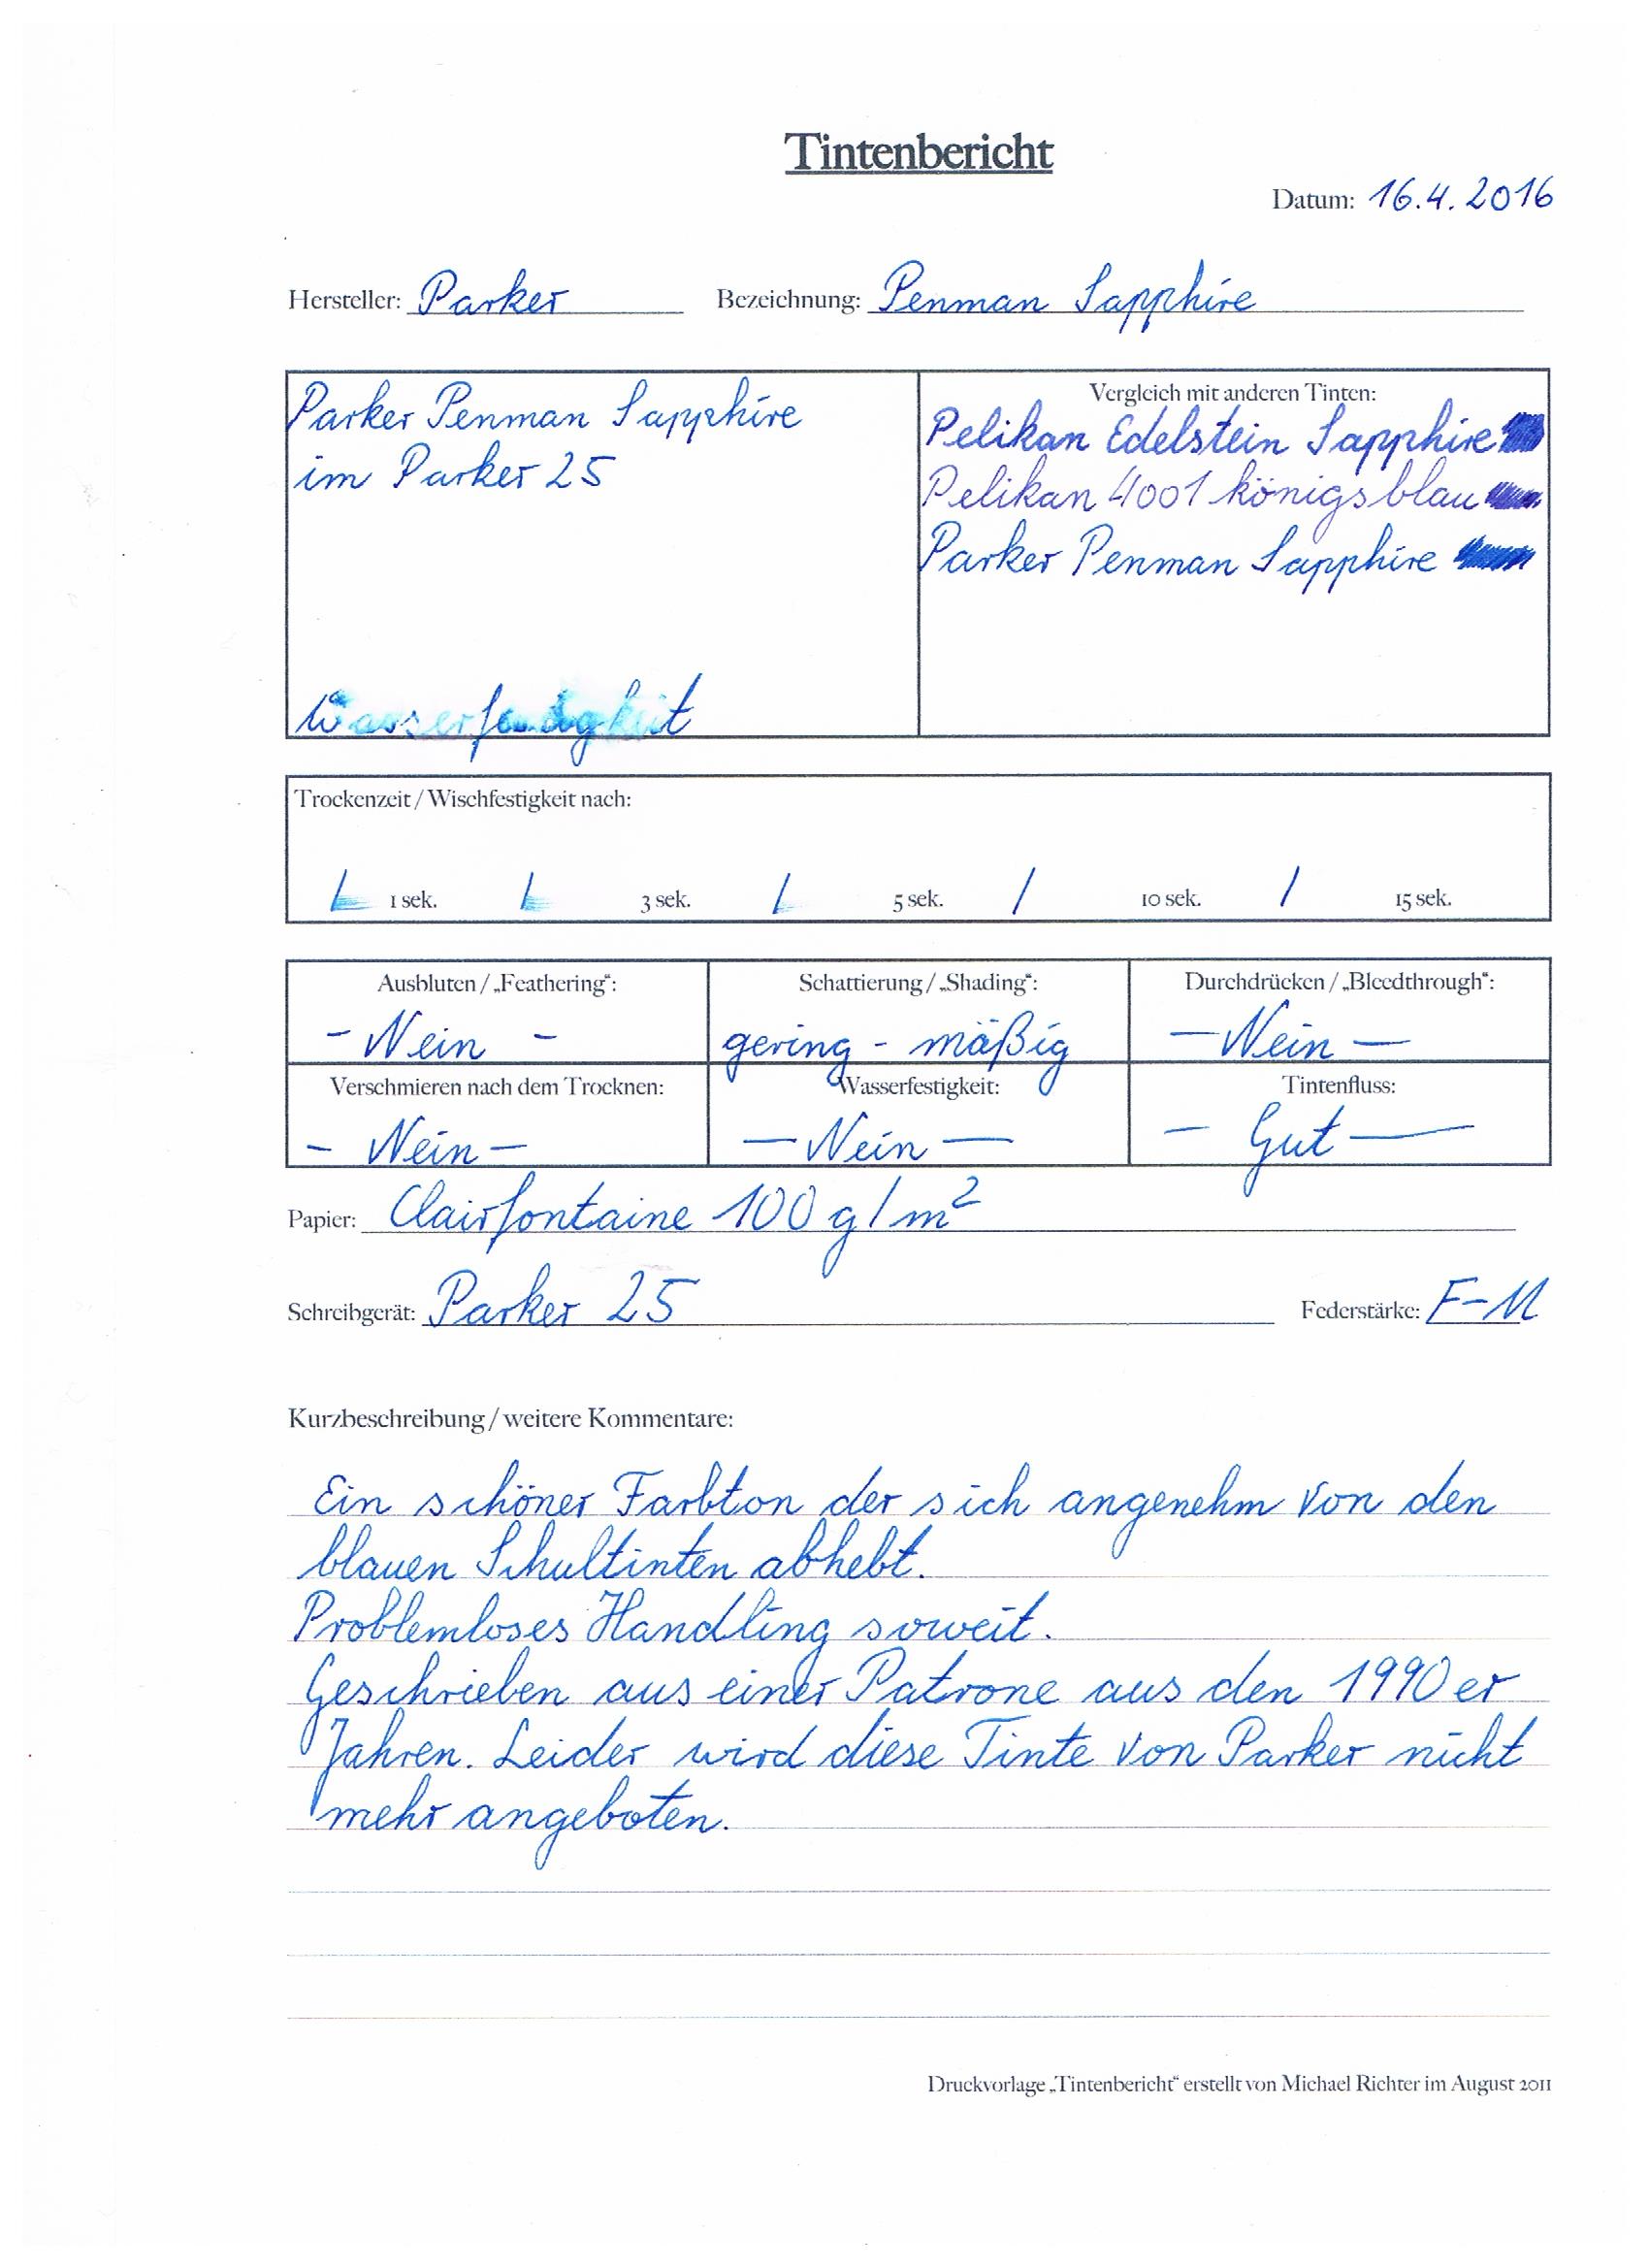 Tintenbericht
Datum: 16.4.2016
Hersteller: Parker Bezeichnung: Penman Sapphire
Parker Penman Sapphire
im Parker 25
Wasserfestigkeit
Vergleich mit anderen Tinten:
Pelikan Edelstein Sapphire
Pelikan 4001 königsblau
Parker Penman Sapphire
Trockenzeit / Wischfestigkeit nach:
1 sek. 3 sek. 5 sek. 10 sek. 15 sek.
Ausbluten / „Feathering“: Schattierung / „Shading“: Durchdrücken / „Bleedthrough“:
- Nein - gering - mäßig - Nein -
Verschmieren nach dem Trocknen: Wasserfestigkeit: Tintenfluss:
- Nein - - Nein - - Gut -
Papier: Clairfontaine 100 g/m²
Schreibgerät: Parker 25 Federstärke: F-M
Kurzbeschreibung / weitere Kommentare:
Ein schöner Farbton der sich angenehm von den
blauen Schultinten abhebt.
Problemloses Handling soweit.
Geschrieben aus einer Patrone aus den 1990er
Jahren. Leider wird diese Tinte von Parker nicht
mehr angeboten.
Druckvorlage „Tintenbericht“ erstellt von Michael Richter im August 2011